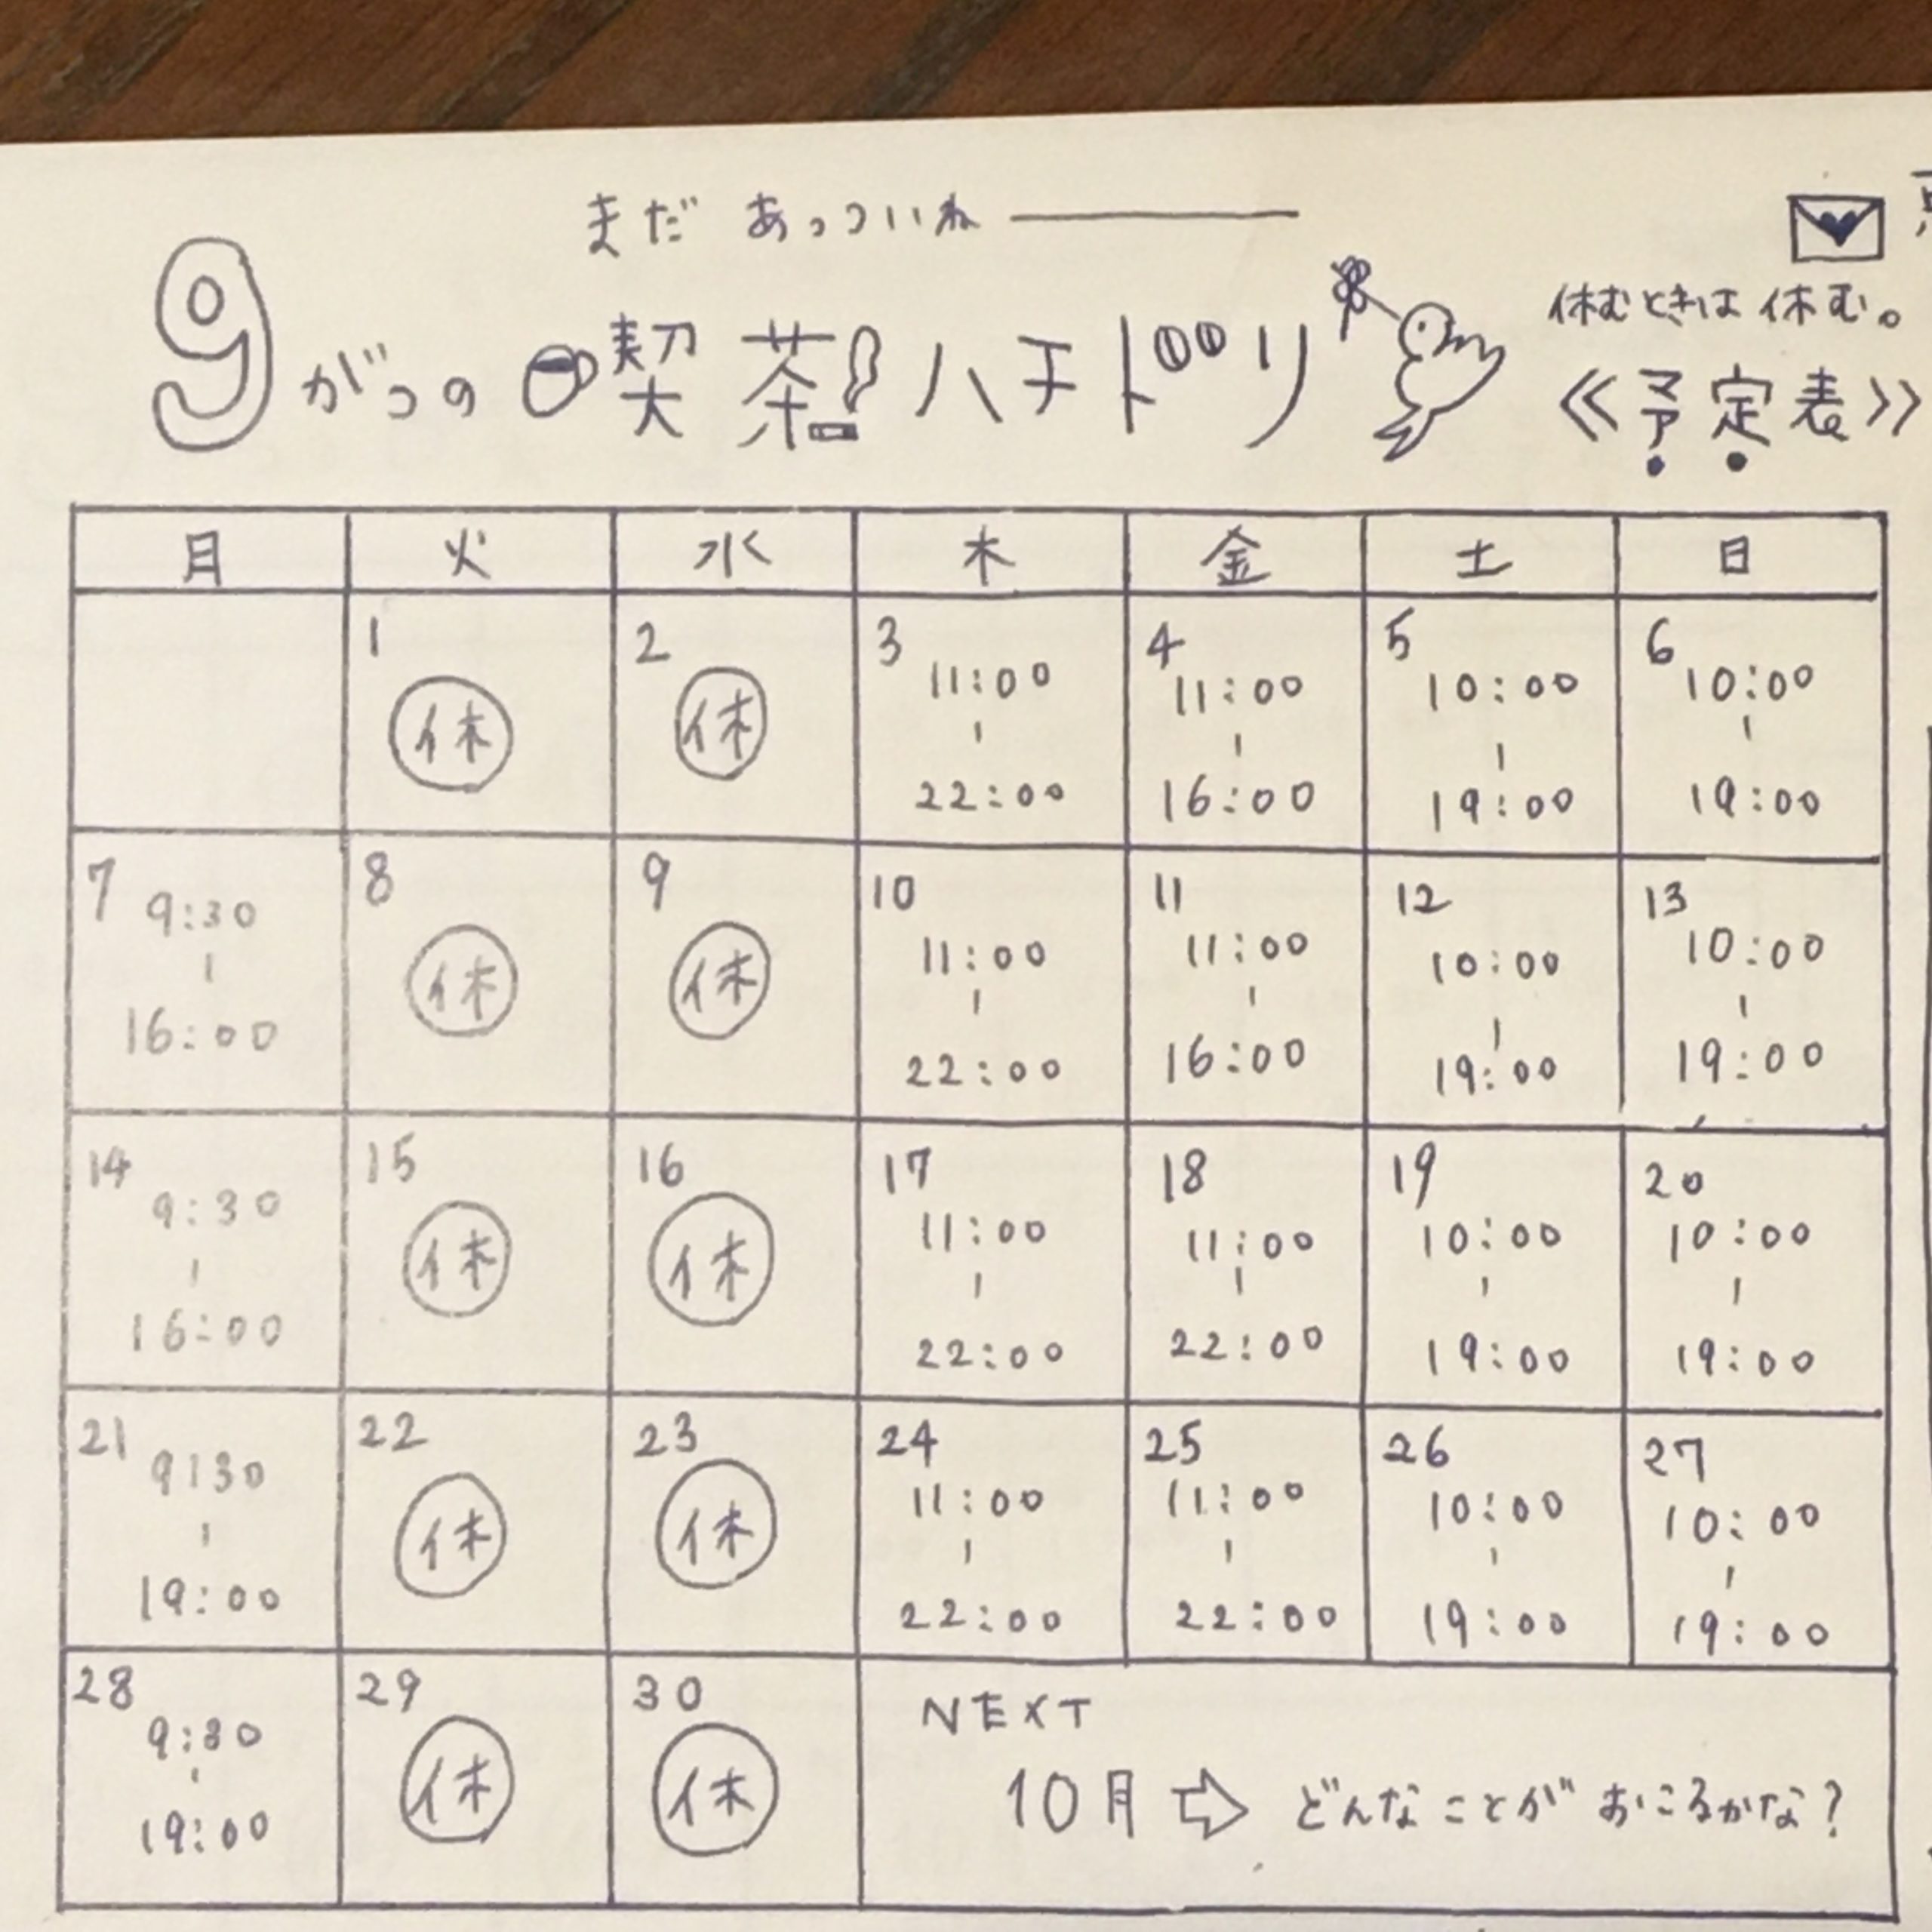 まだ あっついねー
9がつの 喫茶 ハチドリ
休むときは 休む。
《予定表》
月 火 水 木 金 土 日
1 休
2 休
3 11:00 - 22:00
4 11:00 - 16:00
5 10:00 - 19:00
6 10:00 - 19:00
7 9:30 - 16:00
8 休
9 休
10 11:00 - 22:00
11 11:00 - 16:00
12 10:00 - 19:00
13 10:00 - 19:00
14 9:30 - 16:00
15 休
16 休
17 11:00 - 22:00
18 11:00 - 22:00
19 10:00 - 19:00
20 10:00 - 19:00
21 9:30 - 19:00
22 休
23 休
24 11:00 - 22:00
25 11:00 - 22:00
26 10:00 - 19:00
27 10:00 - 19:00
28 9:30 - 19:00
29 休
30 休
NEXT
10月 ⇨ どんなことが おこるかな?